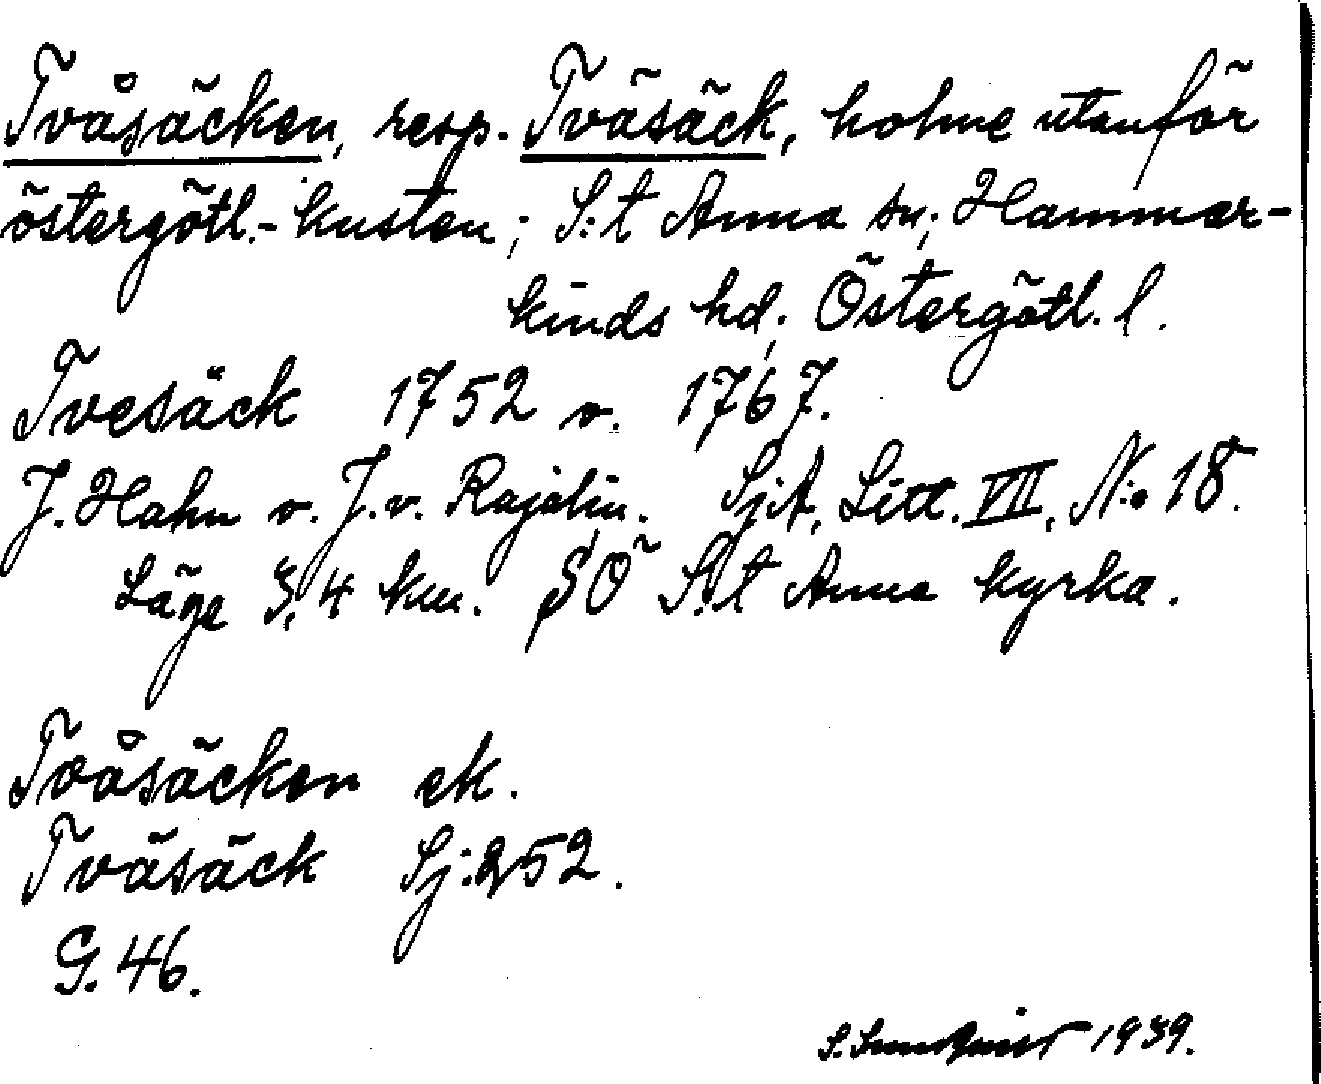 Tvåsäcken, resp. Tväsäck, holme utanför
östergötl.-kusten; S:t Anna sn; Hammar-
kinds hd; Östergötl. l.
Tvesäck 1752 o. 1767.
J. Hahn o. J. v. Rajalin. SjA, Litt. VII, N:o 18.
Läge 3,4 km. SO S:t Anna kyrka.
Tvåsäcken ek.
Tväsäck Sj: 252.
G. 46.
S. 1939.